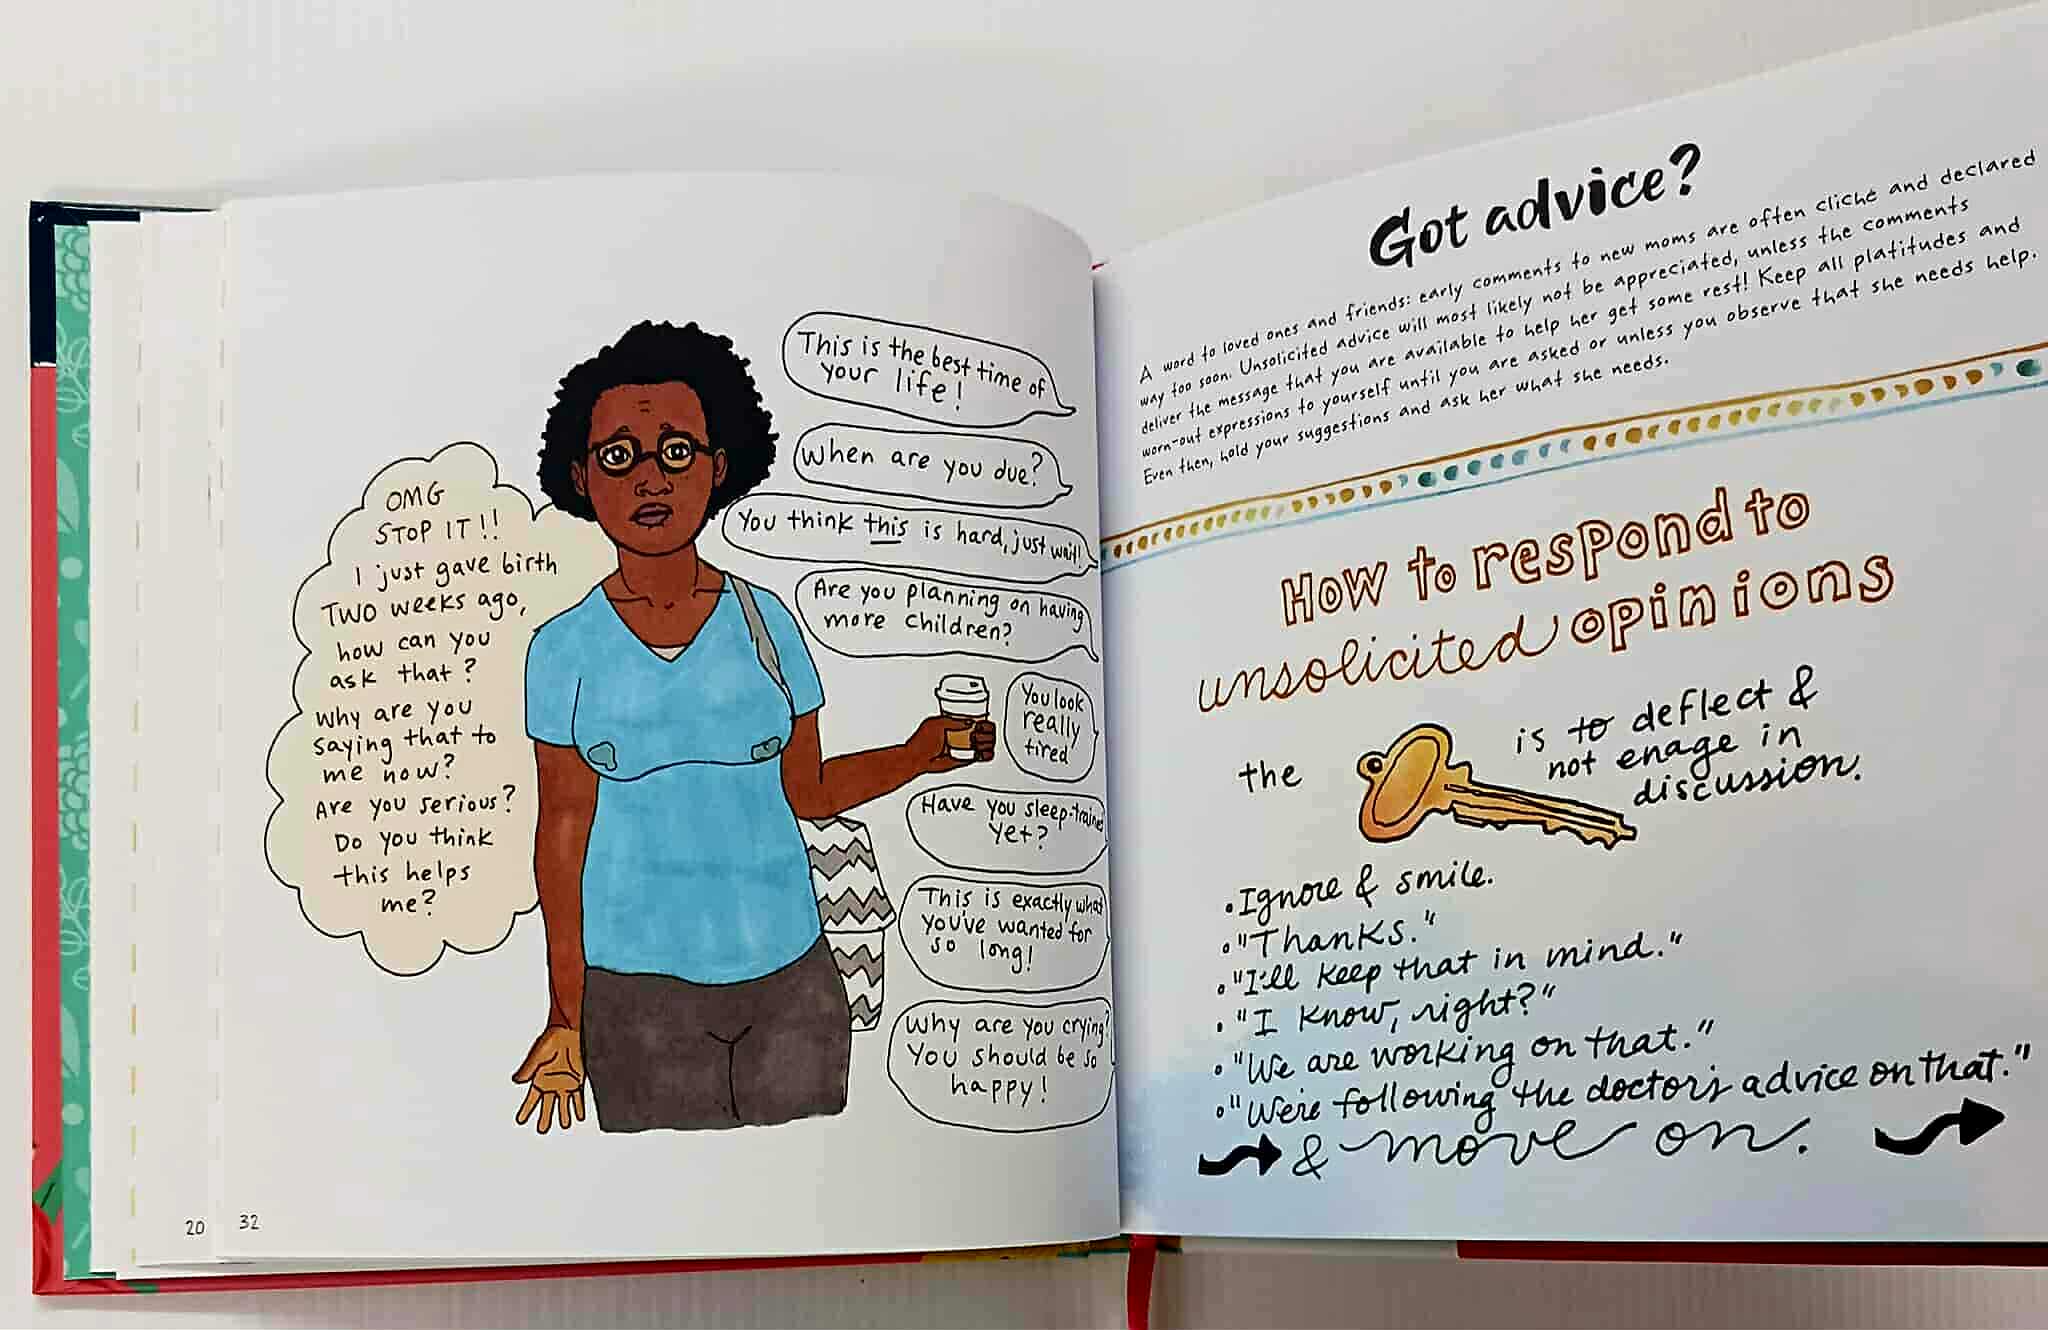 OMG
STOP IT!!
I just gave birth
TWO weeks ago,
how can you
ask that?
Why are you
saying that to
me now?
Are you serious?
Do you think
this helps
me?
This is the best time of
your life!
When are you due?
You think this is hard, just wait!
Are you planning on having
more children?
You look
really
tired
Have you sleep-trained
yet?
This is exactly what
you've wanted for
so long!
Why are you crying?
You should be so
happy!
20
32
Got advice?
A word to loved ones and friends: early comments to new moms are often cliché and declared
way too soon. Unsolicited advice will most likely not be appreciated, unless the comments
deliver the message that you are available to help her get some rest! Keep all platitudes and
worn-out expressions to yourself until you are asked or unless you observe that she needs help.
Even then, hold your suggestions and ask her what she needs.
How to respond to
unsolicited opinions
the is to deflect &
not enage in
discussion.
• Ignore & smile.
• "Thanks."
• "I'll keep that in mind."
• "I know, right?"
• "We are working on that."
• "We're following the doctor's advice on that."
& move on.